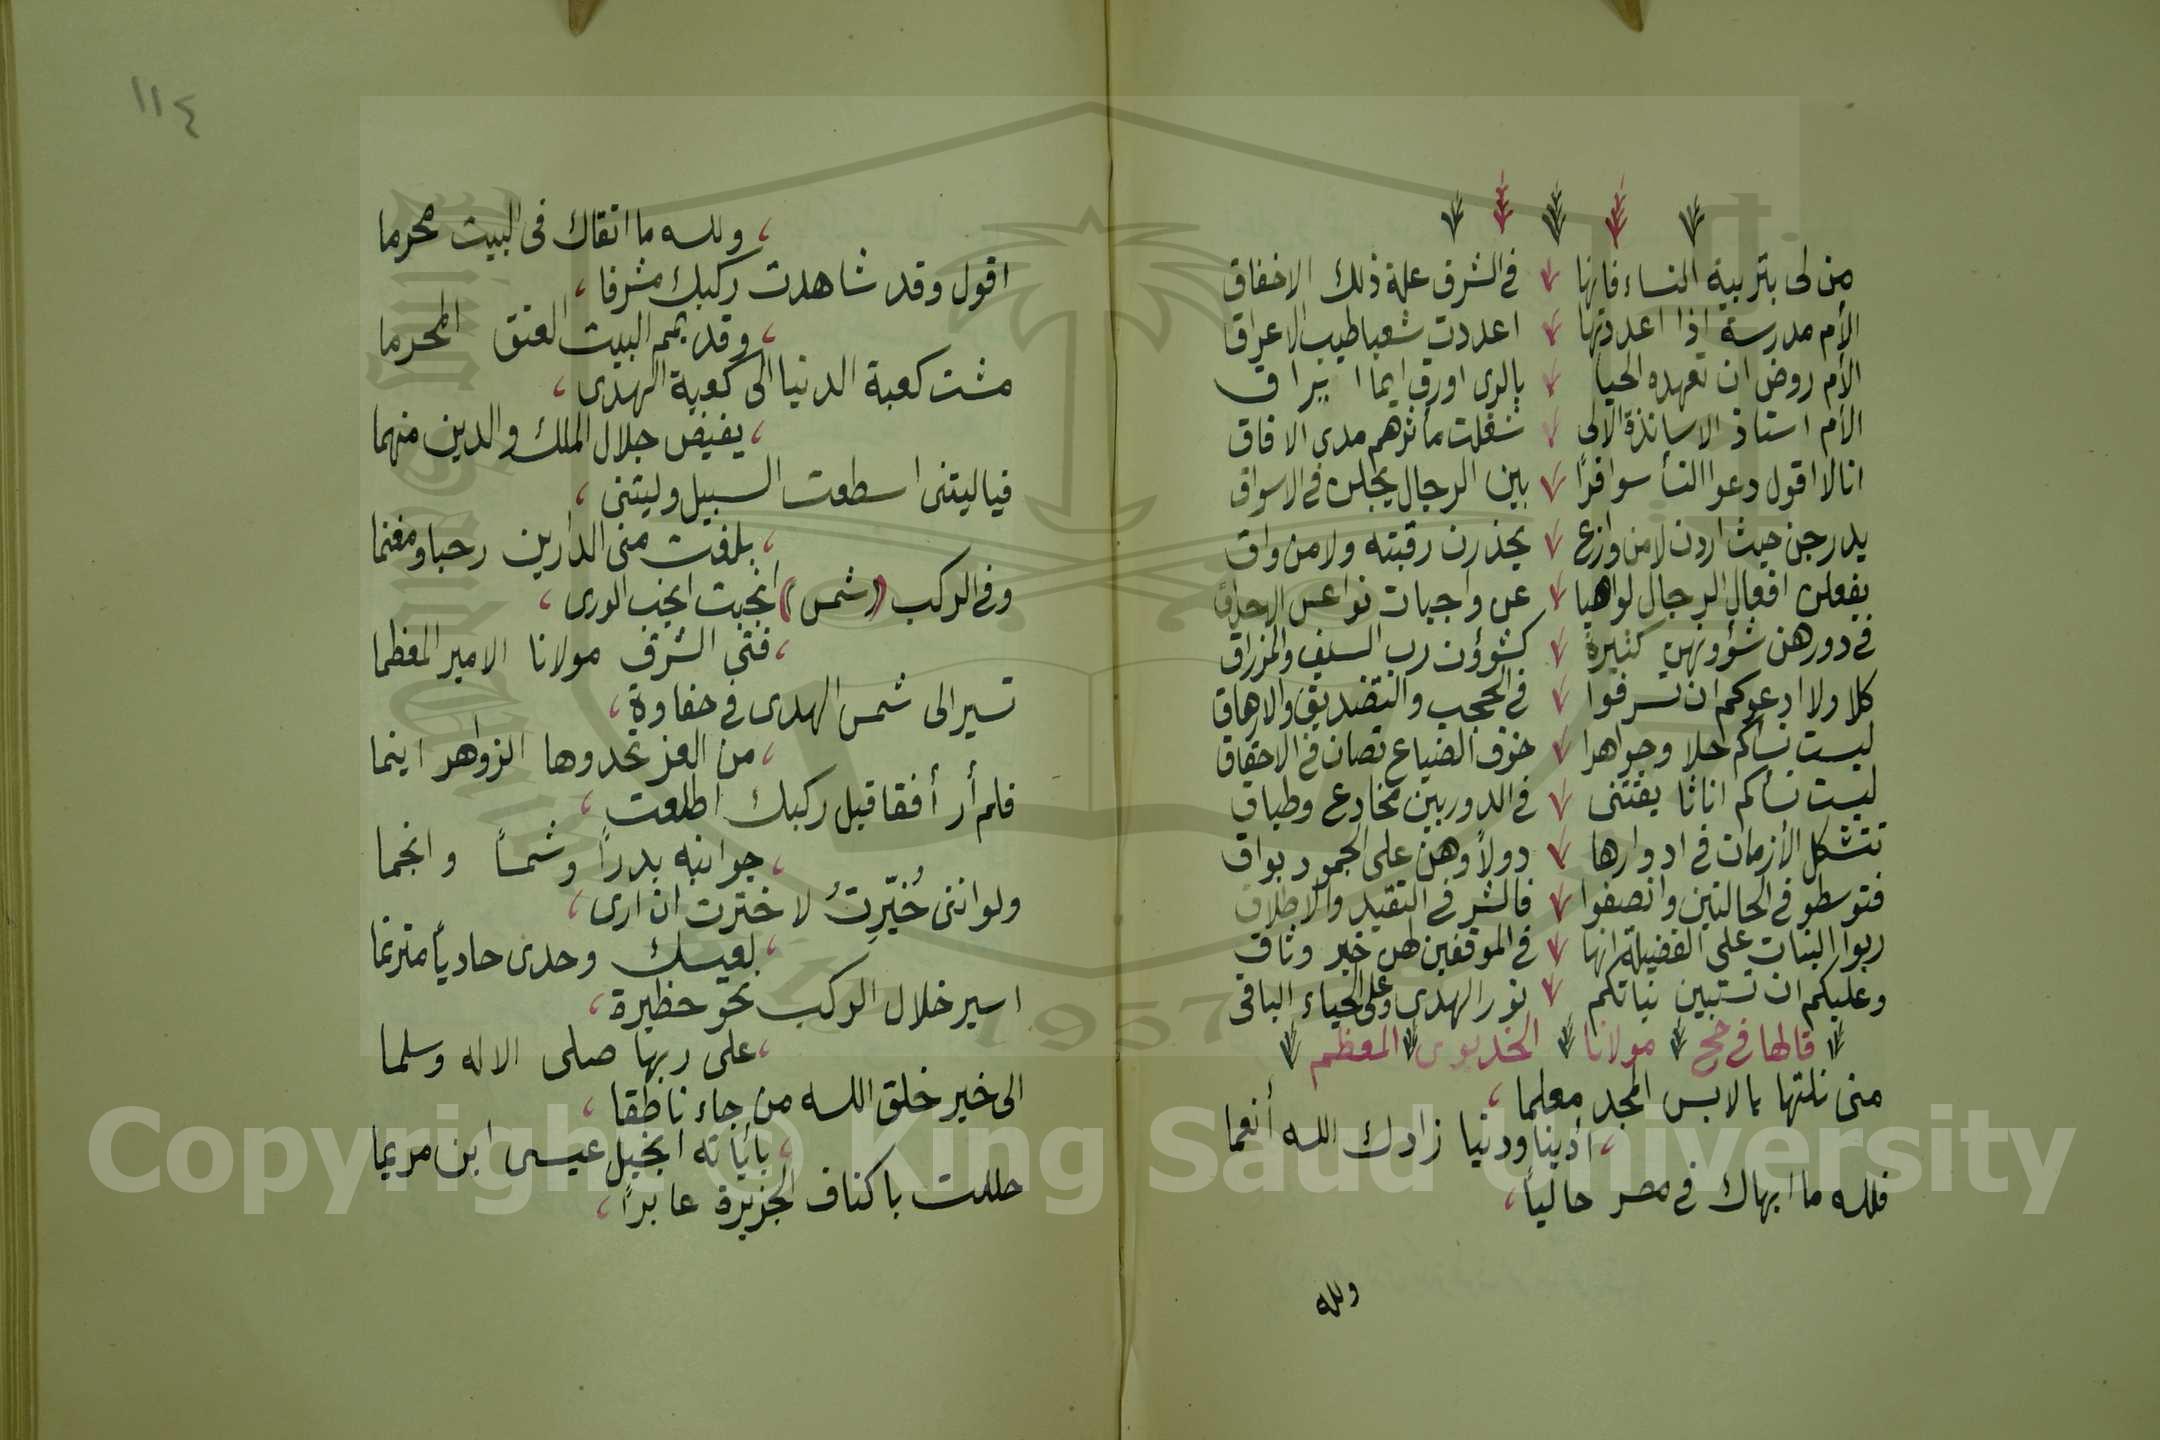 من لى بتربية النساء فانها في الشرق علة ذلك الاخفاق
الأم مدرسة اذا اعددتها اعددت شعبا طيب الاعراق
الأم روض ان تعهده الحيا بالرى اورق ايما ايراق
الأم استاذ الاساتذة الالى شغلت مأثرهم مدى الافاق
انا لا اقول دعوا النسأ سوافرًا بين الرجال يجلن في الاسواق
يدرجن حيث اردن لا من وازع يحذرن رقبته ولا من واق
يفعلن افعال الرجال لواهيا عن واجبات نواعس الاحداق
في دورهن شؤونهن كثيرة كشؤون رب السيف والمزراق
كلا ولا ادعوكم ان تسرفوا في الحجب والتضييق والارهاق
ليست نساكم حلا وجواهرا خوف الضياع تصان في الاحقاق
ليست نسأكم اثاثا يقتنى في الدور بين مخادع وطباق
تتشكل الأزمان في ادوارها دولاً وهن على الجمود بواق
فتوسطو في الحالتين وانصفوا فالشر في التقيد والاطلاق
ربوا البنات على الفضيلة انها في الموقفين لهن خير وثاق
وعليكم ان تستبين بناتكم نور الهدى وعلى الحياء الباقى
قالها في حج مولانا الخديوى المعظم
منى نلتها يا لابس المجد معلما
أدينا ودنيا زادك الله أنعما
فلله ما ابهاك في مصر حالياً
ولله
١١٤
ولله ما اتقاك فى البيت محرما
اقول وقد شاهدت ركبك مشرفا
وقد يمم البيت العتق المحرما
مشت كعبة الدنيا الى كعبة الهدى
يفيض جلال الملك والدين منهما
فيا ليتنى اسطعت السبيل وليتنى
بلغت منى الدارين رحبا ومغنما
وفي الركب (شمس) انجبت انجب الورى
فتى الشرق مولانا الامير المعظما
تسير الى شمس الهدى في حفاوة
من العز تحدوها الزواهر اينما
فلم أر أفقا قبل ركبك اطلعت
جوانبه بدراً وشمساً وانجما
ولو اننى خُيِّرتُ لاخترت ان ارى
لعيسك وحدى حادياً مترنما
اسير خلال الركب نحو حظيرة
على ربها صلى الاله وسلما
الى خير خلق الله من جاء ناطقا
بأياته انجيل عيسى ابن مريما
حللت باكناف الجزيرة عابراً
Copyright © King Saud University
1957